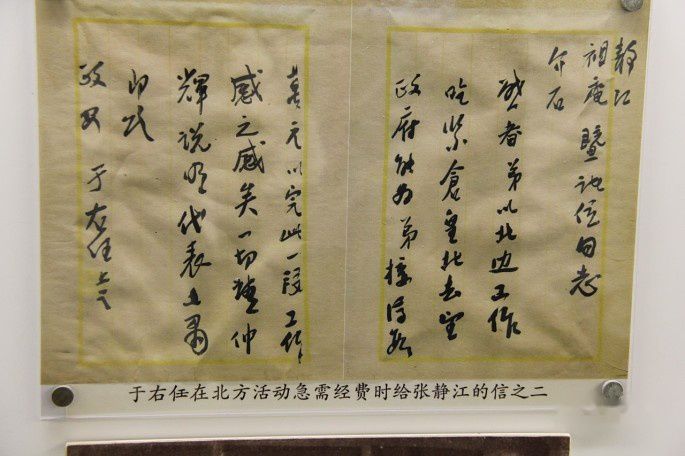 靜江
祖庵暨諸位同志
介石
者弟以北边工作
吃紧倉皇北去望
政府能为弟
万元以完此一段工作
感之感矣一切 仲
輝説明代表上肃
即
政安 于右任上言
于右任在北方活动急需经费时给张静江的信之二